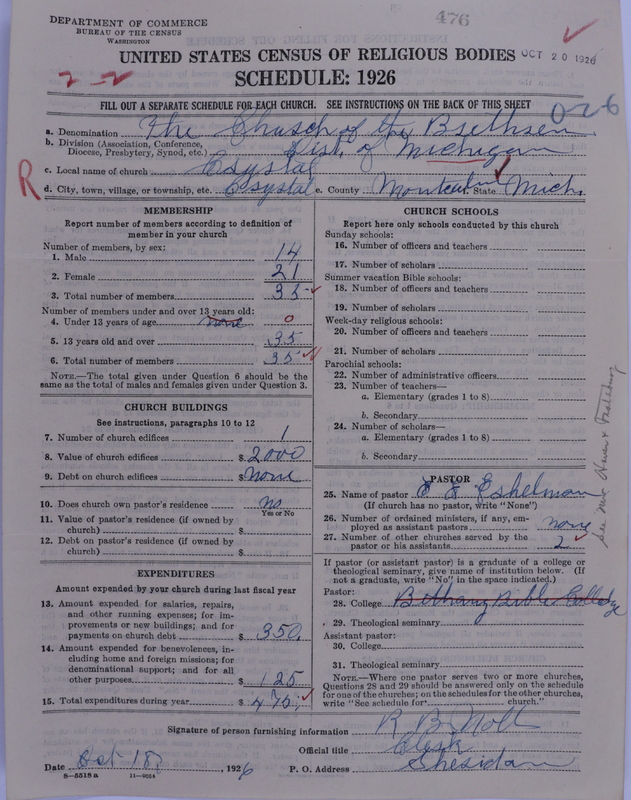 476
DEPARTMENT OF COMMERCE
BUREAU OF THE CENSUS
WASHINGTON
UNITED STATES CENSUS OF RELIGIOUS BODIES OCT 20 1926
SCHEDULE: 1926
2-2
FILL OUT A SEPARATE SCHEDULE FOR EACH CHURCH. SEE INSTRUCTIONS ON THE BACK OF THIS SHEET
0-26
a. Denomination The Church of the Brethren
b. Division (Association, Conference, Diocese, Presbytery, Synod, etc.) Dist. of Michigan
c. Local name of church Crystal
R d. City, town, village, or township, etc. Crystal e. County Montcalm f. State Mich.
MEMBERSHIP
Report number of members according to definition of
member in your church
Number of members, by sex:
1. Male 14
2. Female 21
3. Total number of members 35
Number of members under and over 13 years old:
4. Under 13 years of age none 0
5. 13 years old and over 35
6. Total number of members 35
NOTE.—The total given under Question 6 should be
same as the total of males and females given under Question 3.
CHURCH BUILDINGS
See instructions, paragraphs 10 to 12
7. Number of church edifices 1
8. Value of church edifices $2000
9. Debt on church edifices $none
10. Does church own pastor's residence no
Yes or No
11. Value of pastor's residence (if owned by
church) $
12. Debt on pastor's residence (if owned by
church) $
EXPENDITURES
Amount expended by your church during last fiscal year
13. Amount expended for salaries, repairs,
and other running expenses; for im-
provements or new buildings; and for
payments on church debt $350.
14. Amount expended for benevolences, in-
cluding home and foreign missions; for
denominational support; and for all
other purposes $125
15. Total expenditures during year $475.
CHURCH SCHOOLS
Report here only schools conducted by this church
Sunday schools:
16. Number of officers and teachers
17. Number of scholars
Summer vacation Bible schools:
18. Number of officers and teachers
19. Number of scholars
Week-day religious schools:
20. Number of officers and teachers
21. Number of scholars
Parochial schools:
22. Number of administrative officers
23. Number of teachers—
a. Elementary (grades 1 to 8)
b. Secondary
24. Number of scholars—
a. Elementary (grades 1 to 8)
b. Secondary
PASTOR
25. Name of pastor Eshelman
(If church has no pastor, write "None")
26. Number of ordained ministers, if any, em-
ployed as assistant pastors none
27. Number of other churches served by the
pastor or his assistants 2
If pastor (or assistant pastor) is a graduate of a college or
theological seminary, give name of institution below. (If
not a graduate, write "No" in the space indicated.)
Pastor:
28. College Bethany Bible College
29. Theological seminary
Assistant pastor:
30. College
31. Theological seminary
NOTE.—Where one pastor serves two or more churches,
Questions 28 and 29 should be answered only on the schedule
for one of the churches; on the schedules for the other churches,
write "See schedule for church."
See
Signature of person furnishing information R B Noll
Official title Clerk
Date Oct 18, 1926 P. O. Address Sheridan
8-5518a 11-9024